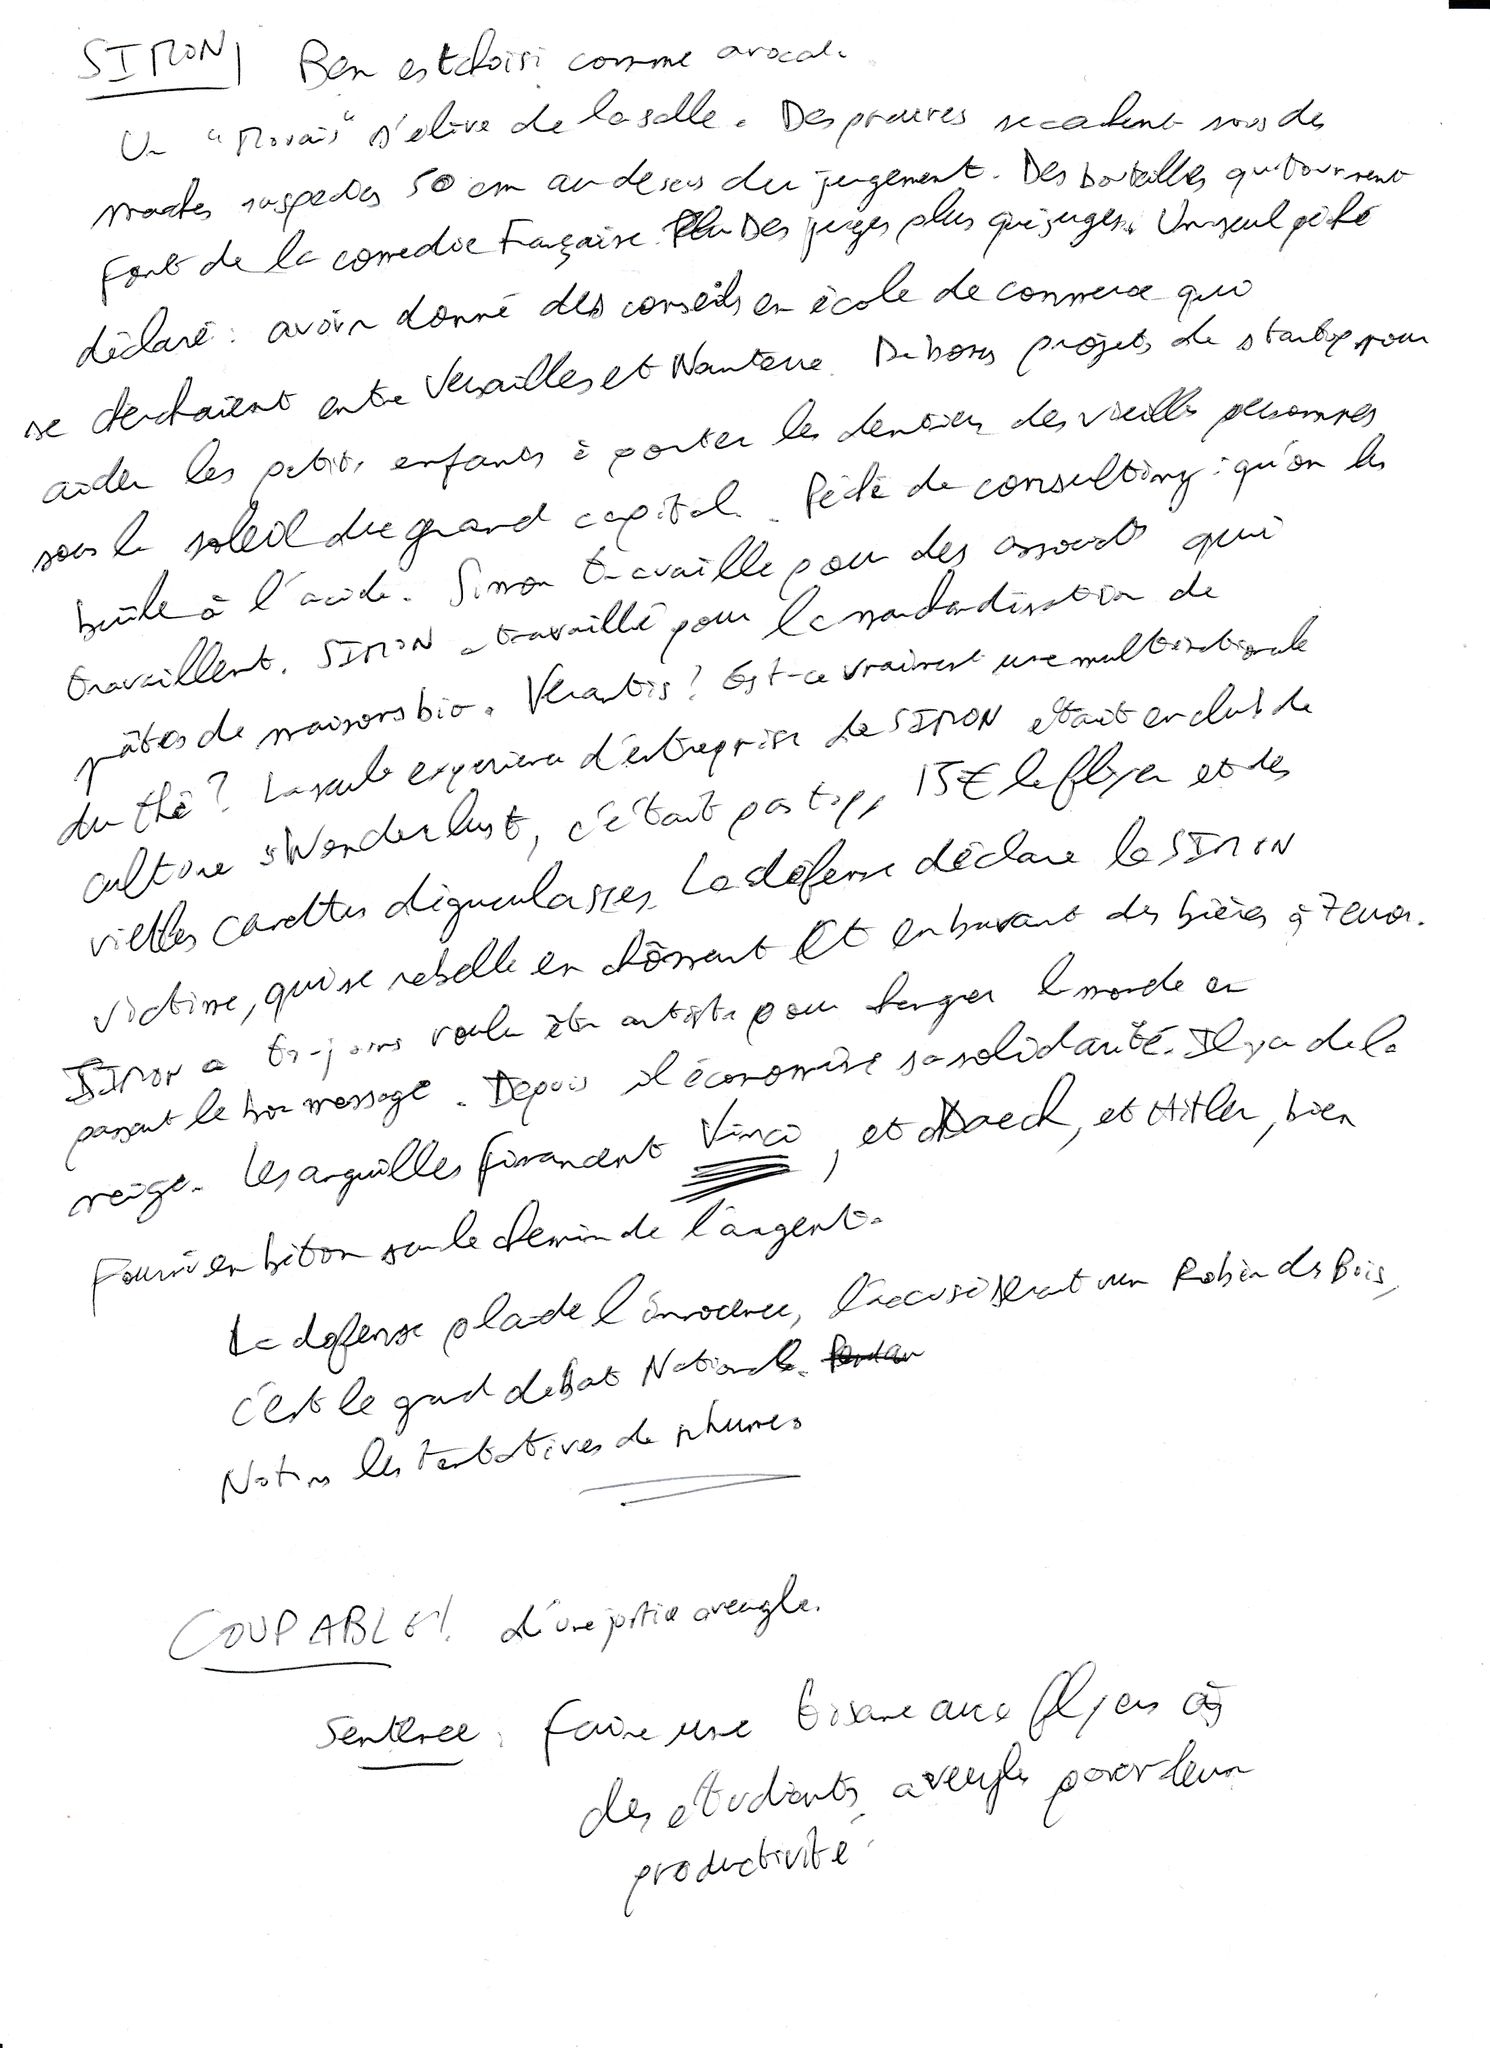 SIMON Ben est choisi comme avocat.
Un "Mouais" s'elève de la salle. Des preuves se cachent sous des
suspectes 50 cm au dessus du jugement. Des bouteilles qui tournent
font de la comedie Française. Des juges plus que juges. Un seul péché
déclaré : avoir donné des conseils en école de commerce qui
se cherchaient entre Versailles et Nanterre. De bons projets de startup pour
aider les petits enfants à porter les dentiers des vieilles personnes
sous le soleil du grand capital. Péché de consulting : qu'on les
brûle à l'acide. Simon travaille pour des qui
travaillent. SIMON a travaillé pour la standardisation de
pâtes de maisons bio. ? Est-ce vraiment une multinationale
du thé ? La seule experience d'entreprise de SIMON etait en club de
culture "Wanderlust, c'était pas top, 15€ le flyer et des
vielles carottes dégueulasses. La défense déclare le SIMON
victime, qui se rebelle en chômant et en buvant des bières à 7 euros.
SIMON a toujours voulu être artiste pour changer le monde en
passant le bon message. Depuis il économise sa solidarité. Il y a de la
neige. Les anguilles financent Vinci, et Daech, et Hitler, bien
fourni en béton sur le chemin de l'argent.
La defense plaide l'innocence, l'accusé serait un Robin des Bois,
c'est le grand debat Nationale.
Notons les tentatives de rhume.
COUPABLE! d'une justice aveugle.
Sentence : Faire une tisane aux flyers à
des étudiants aveugles pour leur
productivité